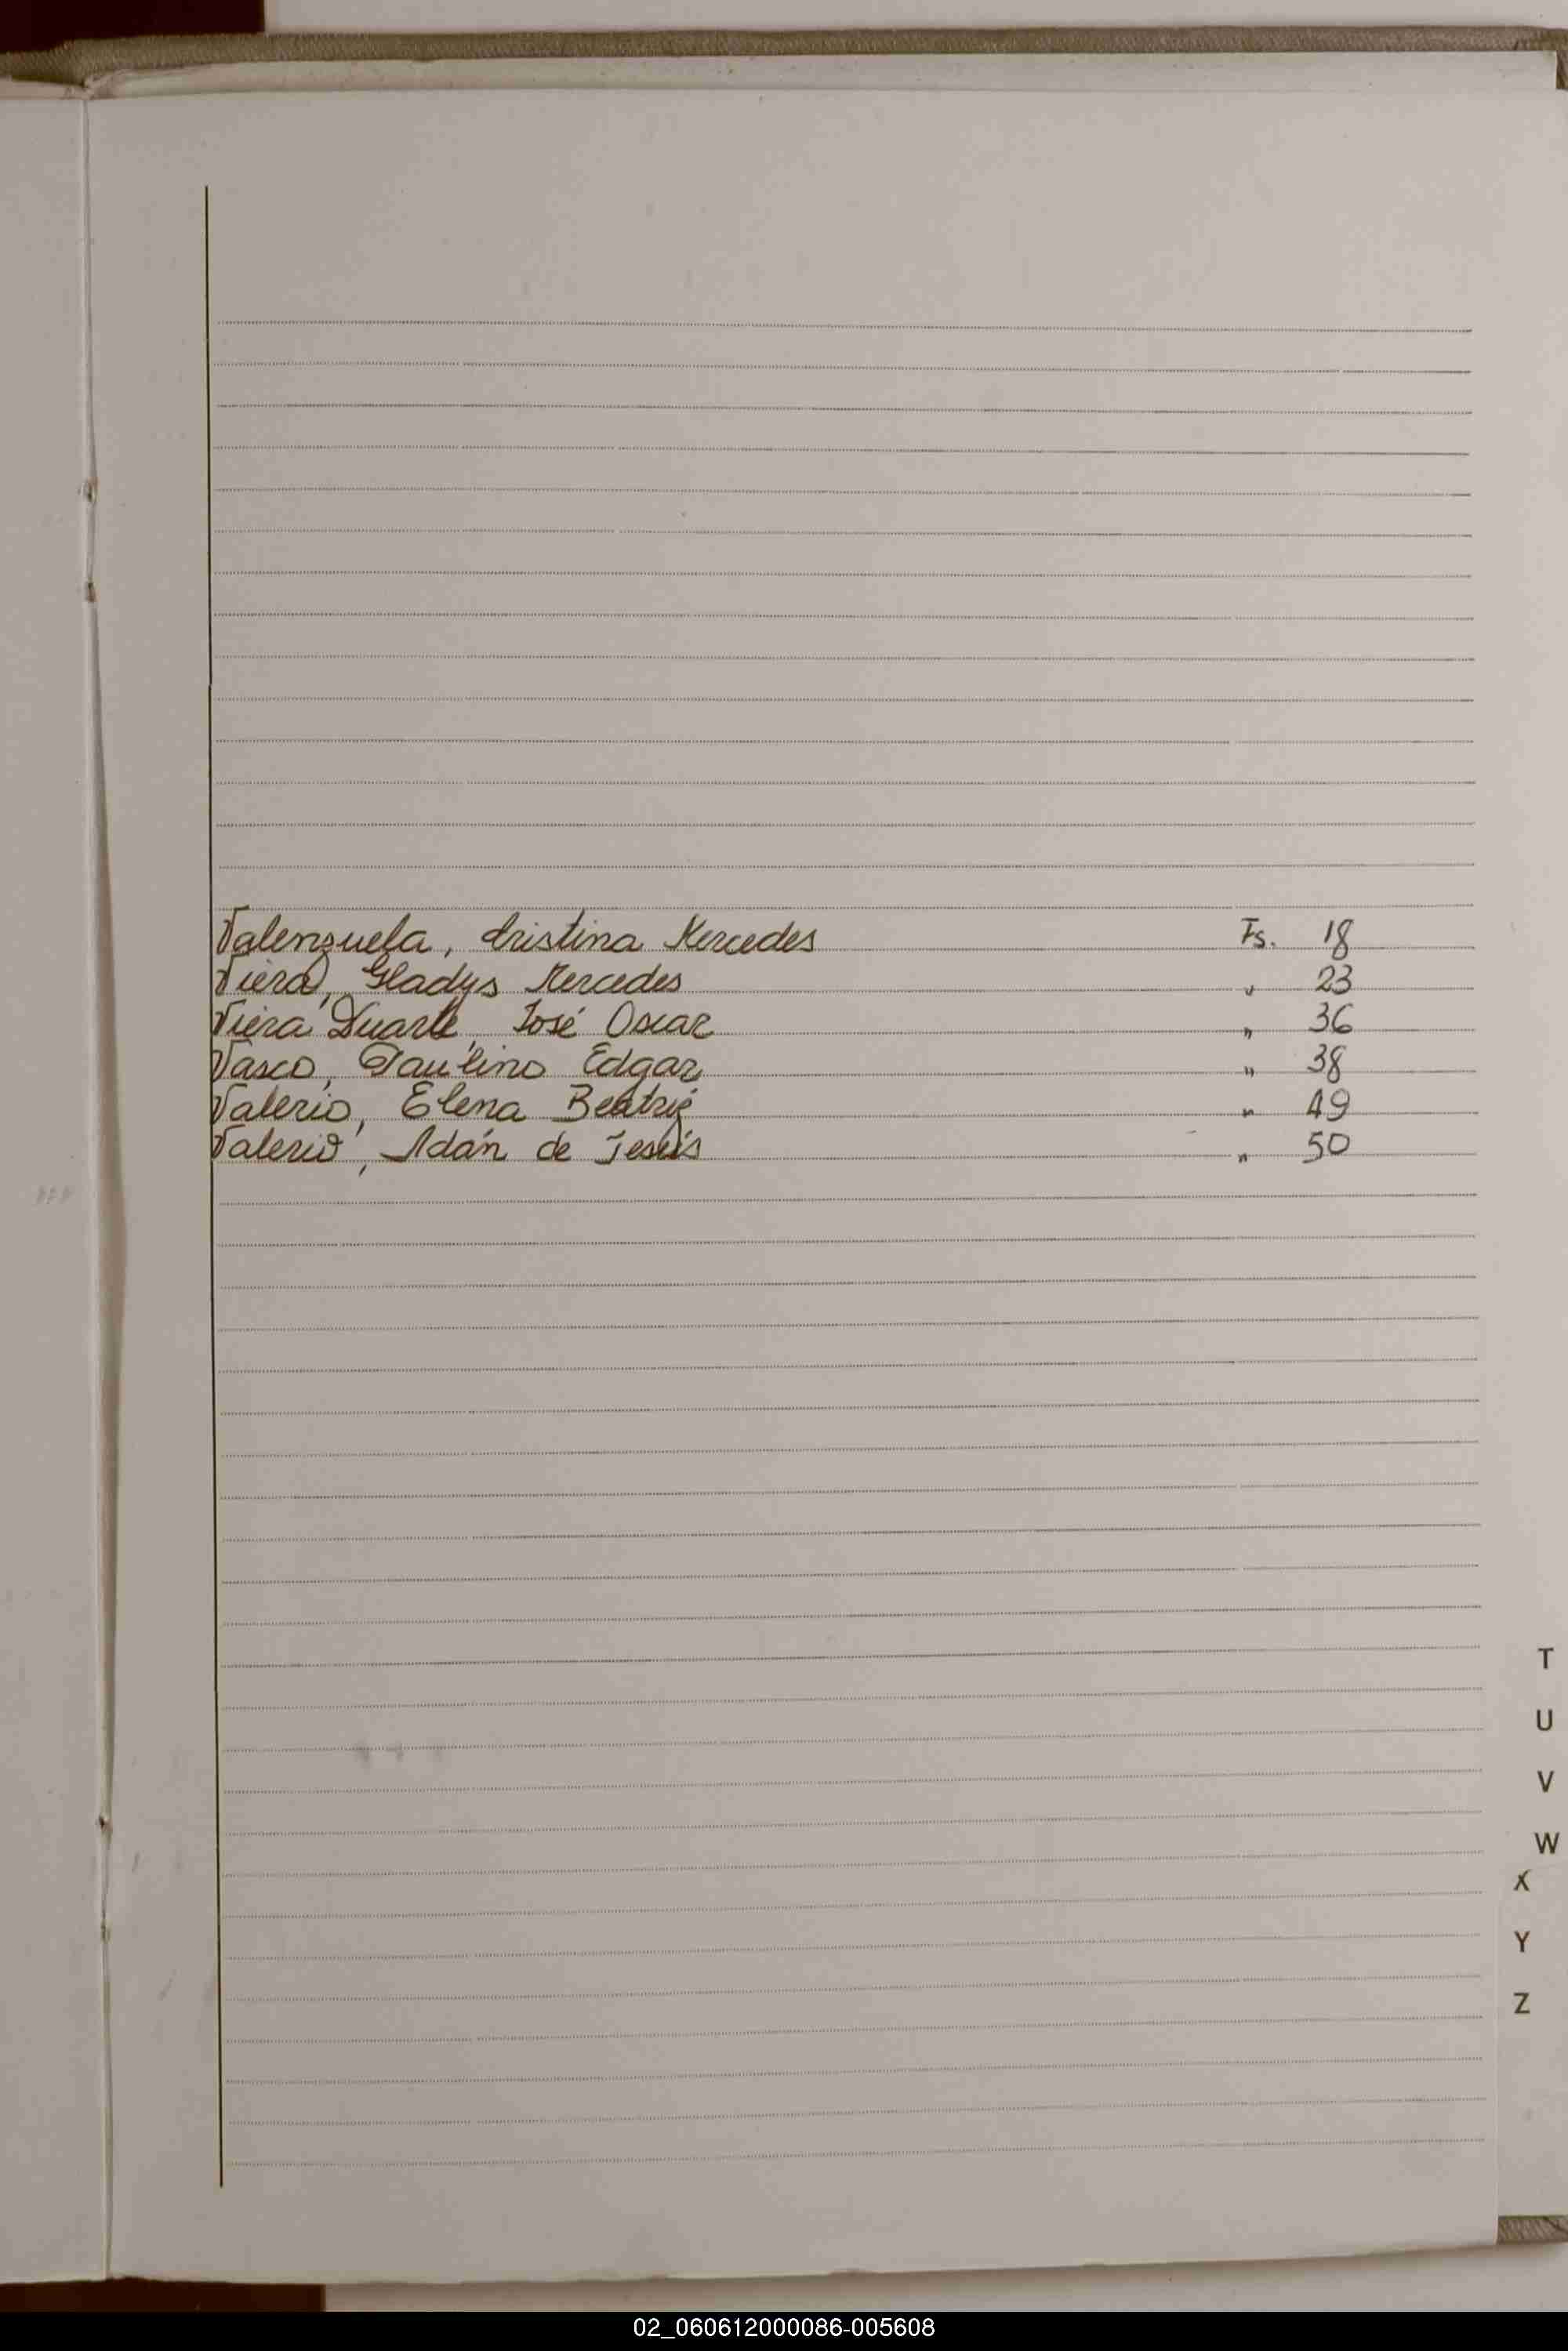 Valenzuela, Cristina Mercedes Fs. 18
Viera, Gladys Mercedes " 23
Viera Duarte, José Oscar " 36
Vasco, Paulino Edgar " 38
Valerio, Elena Beatriz " 49
Valerio, Adán de Jesús " 50
T
U
V
W
X
Y
Z
02_060612000086-005608